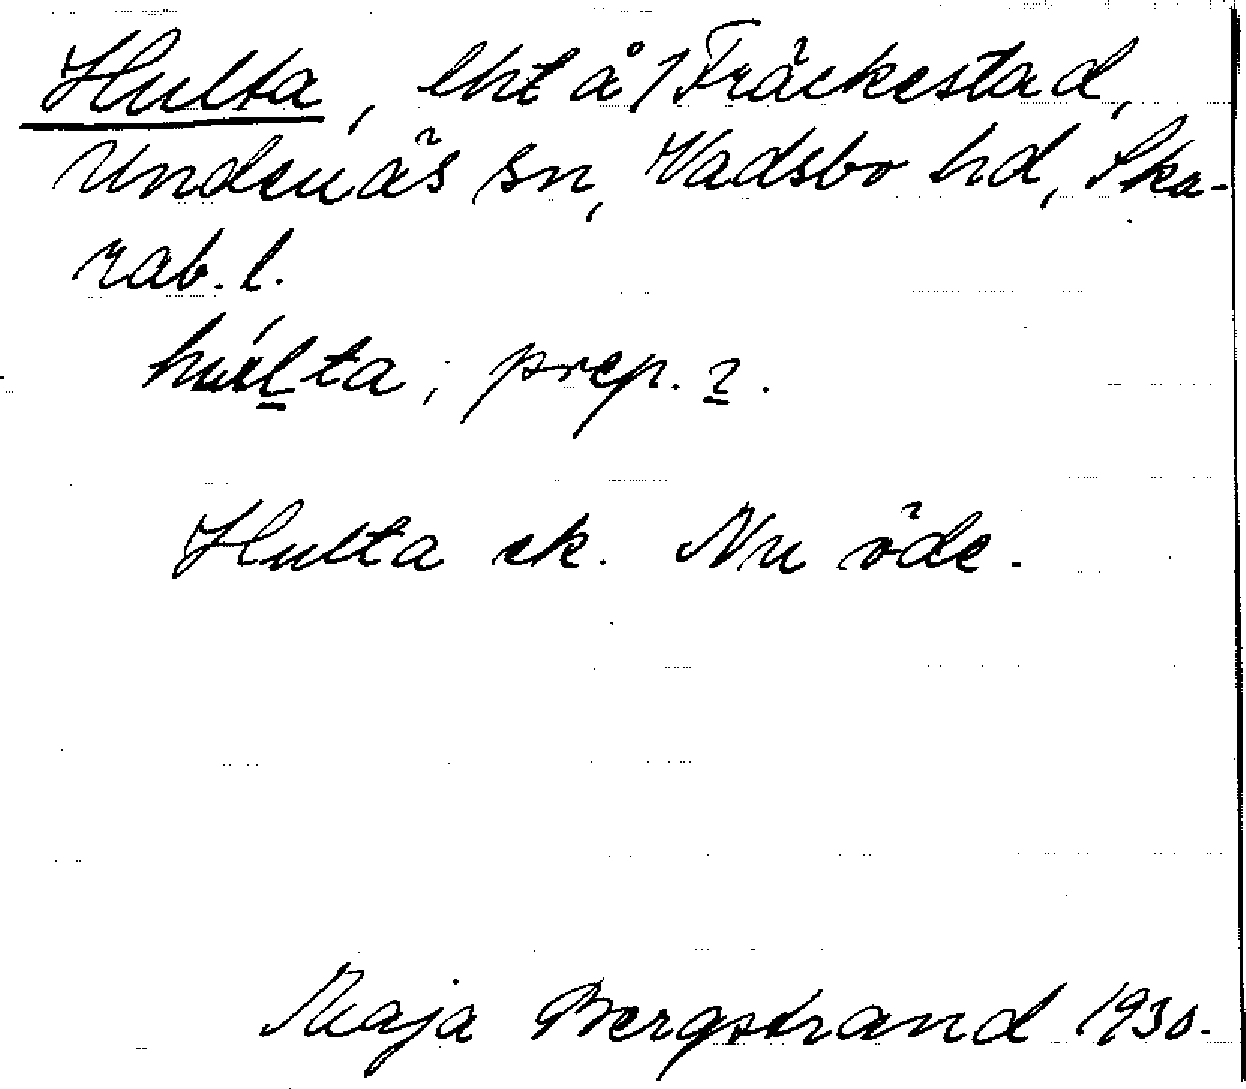 Hulta, lht å 1 Fräckestad,
Undenäs sn, Vadsbo hd, Ska-
rab. l.
húlta; prep. ɿ.
Hulta ek. Nu öde.
Maja Bergstrand 1930.